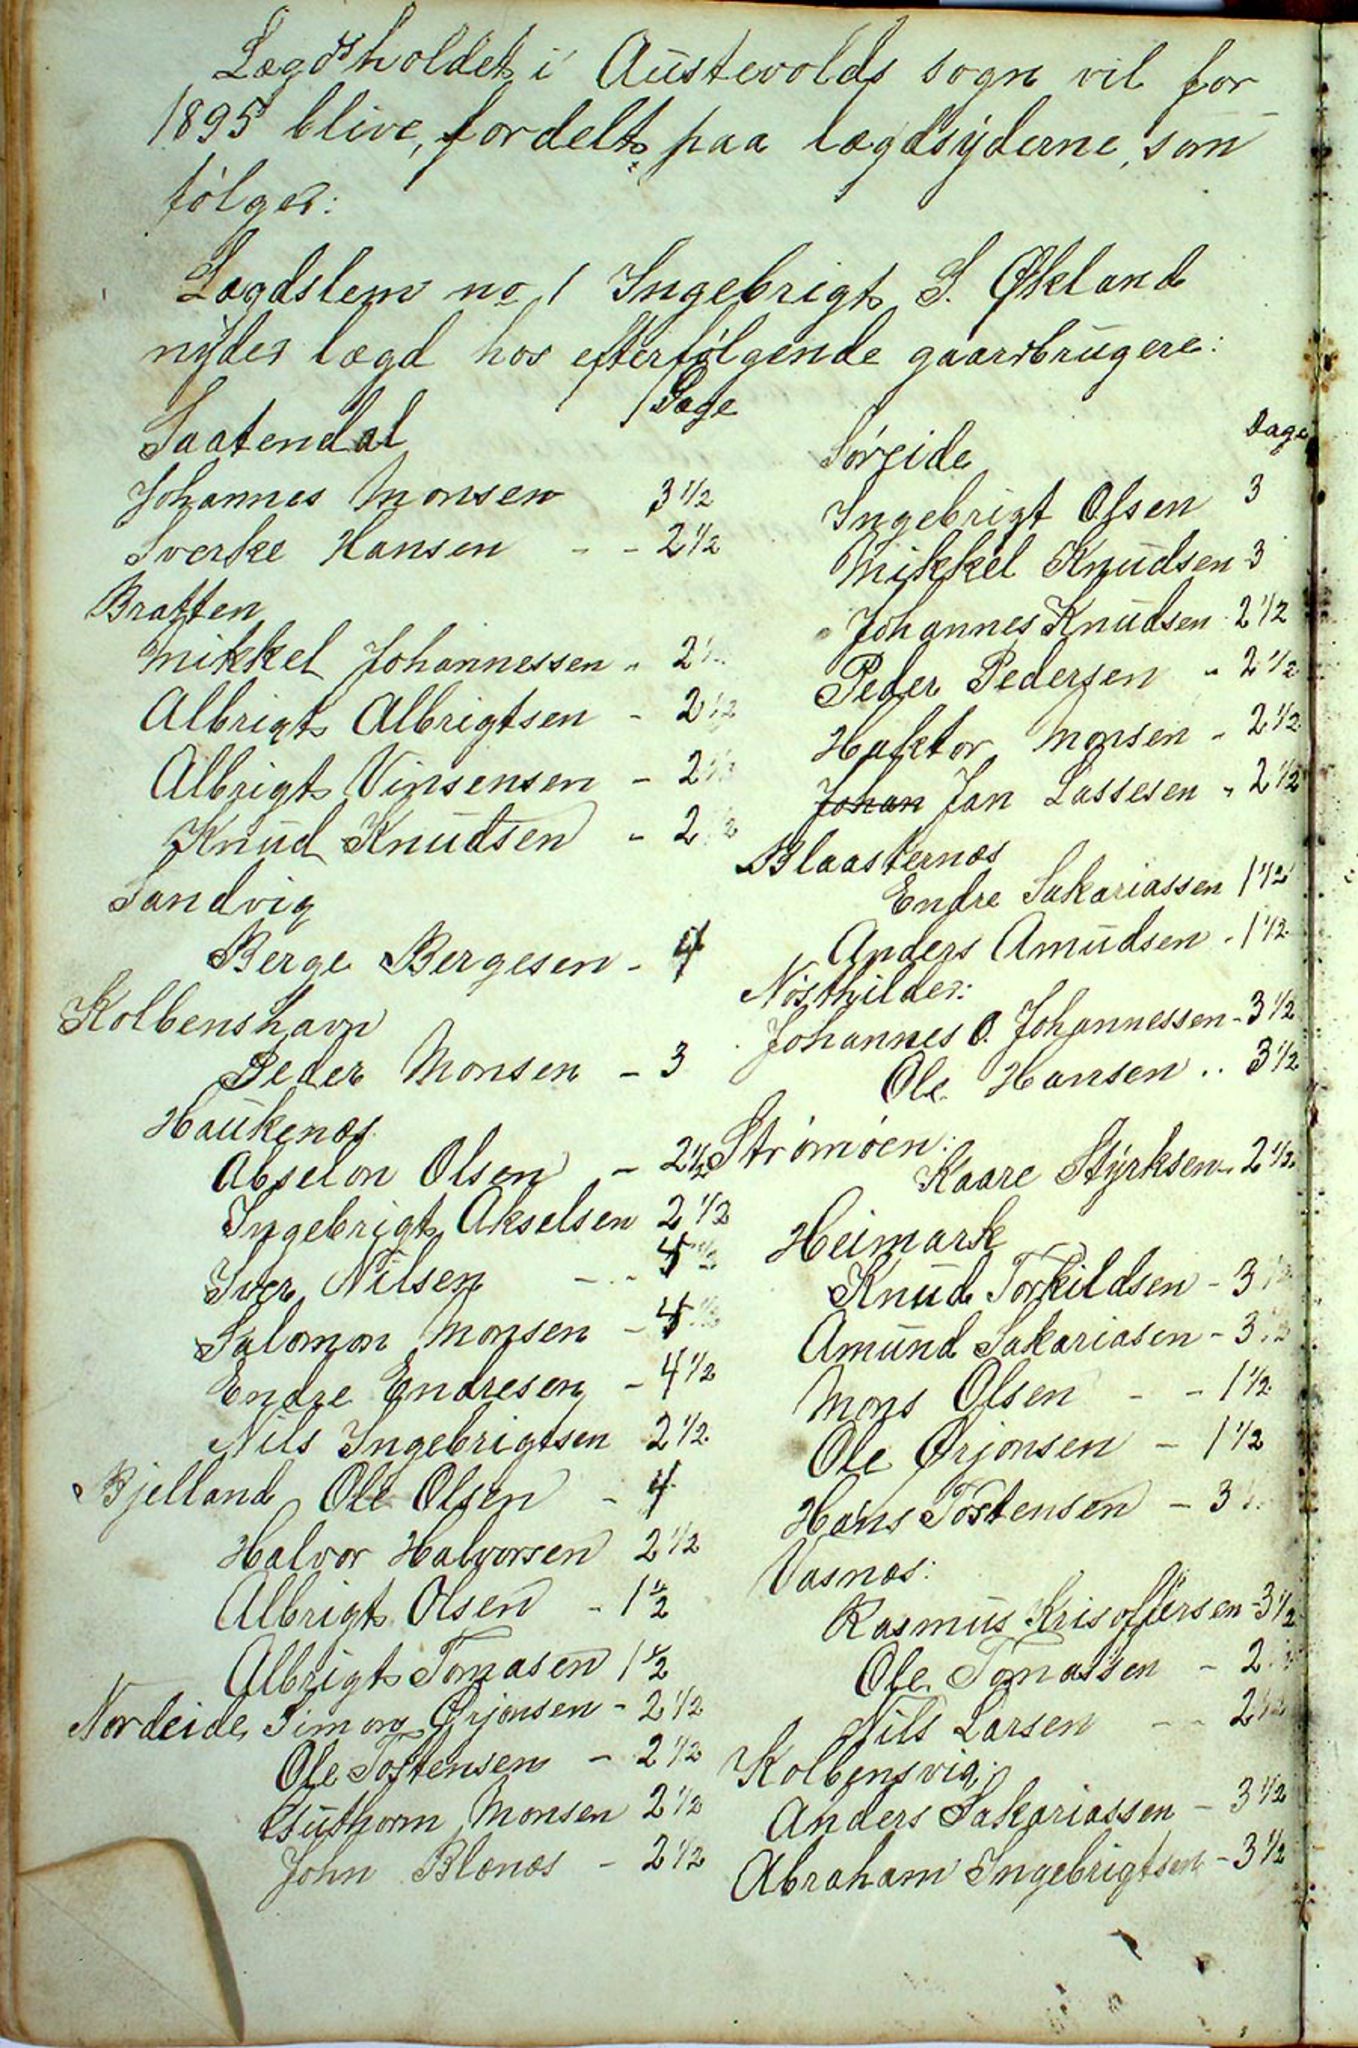 Lægdsholdet i Austevolds sogn vil for
1895 blive, fordelt, paa lægdsyderne, som
følger:
Lægdslem no 1 Ingebrigt S. Økland
nyder lægd hos efterfølgende gaardbrugere:
Dage
Saatendal
Johannes Monsen 3 1/2
Sverke Hansen - - 2 1/2
Bratten
Mikkel Johannessen - 2 1/2
Albrigt Albrigtsen - 2 1/2
Albrigt Vinsensen - 2 1/2
Knud Knudsen - 2 1/2
Sandvig
Berge Bergesen - 4
Kolbenshavn
Peder Monsen - 3
Haukenæs
Abselon Olsen - 2 1/2
Ingebrigt Akselsen 2 1/2
Iver Nilsen - - 1/2
Salomon Monsen - 1/2
Endre Endresen - 4 1/2
Nils Ingebrigtsen 2 1/2
Bjelland Ole Olsen - 4
Halvor Halvorsen 2 1/2
Albrigt Olsen - 1 1/2
Albrigt Tomasen 1 1/2
Nordeide Simon Ørjonsen - 2 1/2
Ole Tostensen - 2 1/2
Guthorm Monsen 2 1/2
John Blænæs - 2 1/2
Dage
Søreide
Ingebrigt Olsen 3
Mikkel Knudsen - 3
Johannes Knudsen - 2 1/2
Peder Pedersen - 2 1/2
Haktor Monsen - 2 1/2
Johan Jan Lassesen - 2 1/2
Blaasternæs
Endre Sakariassen 1 1/2
Anders Amudsen - 1 1/2
Nøsthilder:
Johannes O. Johannessen - 3 1/2
Ole Hansen .. 3 1/2
Strømøen:
Kaare Styrksen - 2 1/2
Heimark
Knud Torkildsen - 3 1/2
Amund Sakariasen - 3 1/2
Mons Olsen - - 1 1/2
Ole Ørjonsen - 1 1/2
Hans Tostensen - 3
Vasnæs:
Rasmus Krisoffersen - 3 1/2
Ole Tomassen - 2
Nils Larsen - - 2 1/2
Kolbensvig:
Anders Sakariassen - 3 1/2
Abraham Ingebrigtsen - 3 1/2